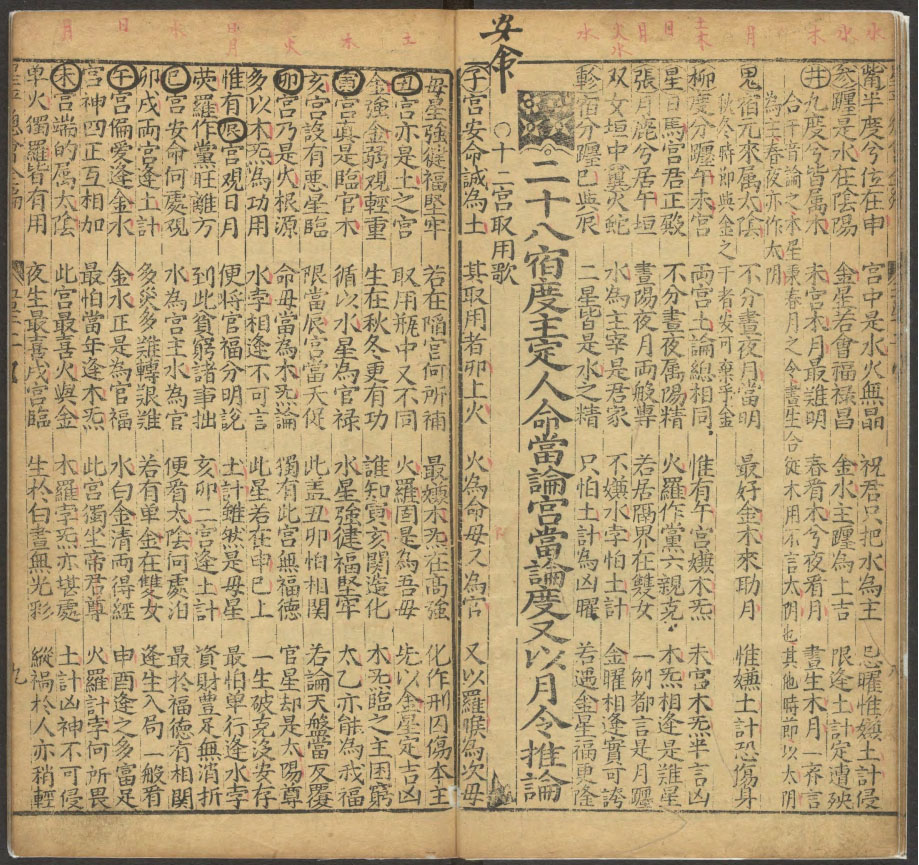 觜半度兮位在申 宮中是水火無晶 祝君只把水為主 忌曜惟嫌土計侵
參躔是水在陰陽 金星若會福祿昌 金水主躔為上吉 限逢土計定遭殃
井九度兮皆屬木 未宮木月最難明 春看木兮夜看月 晝生木月一齊言
鬼宿元來屬太陰 不分晝夜月當明 最好金木來助月 惟嫌土計恐傷身
柳度分躔午未宮 兩宮土論總相同 惟有午宮嫌木炁 未宮木炁半言凶
星日馬宮君正歟 不分晝夜屬陽精 火羅作黨六親克 木炁相逢是難星
張月鹿兮居午垣 晝陽夜月兩般專 若居隔界在雙女 一例都言是月躔
双女垣中翼火蛇 水為主宰是君家 不嫌水孛怕土計 金曜相逢實可誇
軫宿分躔巳與辰 二星皆是水之精 只怕土計為凶曜 若遇金星福更隆
二十八宿度主定人命當論宮當論度又以月令推論
○十二宮取用歌
安命
子宮安命誠為土 其取用者卯上火 火為命母又為官 又以羅睺為次母
母星強健福堅牢 若在陷宮何所補 最嫌木炁在高強 化作刑囚傷本主
丑宮亦是土之宮 取用瓶中又不同 火羅固是為吾母 先以金星定吉凶
金強金弱觀輕重 生在秋冬更有功 誰知寅亥關造化 木炁臨之主困窮
寅宮真是臨官木 循以水星為官祿 水星強健福堅牢 太乙亦能為我福
亥宮設有惡星臨 限當辰宮當夭促 此盖丑卯怕相關 若論天盤當反覆
卯宮乃是火根源 命母當為木炁論 獨有此宮無福德 官星却是太陽尊
多以木炁為功用 水孛相逢不可言 此星若在申巳上 一生破克沒安存
惟有辰宮觀日月 便將官福分明說 土計雖然是母星 最怕單行逢水孛
熒羅作黨旺難方 到此貧窮諸事拙 亥卯二宮逢土計 資財豊足無消折
巳宮安命何處观 水為宮主水為官 便看太陰何處泊 最於福德有相関
卯戌兩宮逢土計 多災多難轉艱難 若有单金在雙女 逢生入局一般看
午宮偏愛逢金水 金水正是為官福 水白金清兩得經 申酉逢之多富足
宮神四正互相加 最怕當年逢木炁 此宮獨坐帝君尊 火羅計孛何所畏
未宮端的屬太陰 此宮最喜火與金 木羅孛炁亦堪處 土計凶神不可侵
单火獨羅皆有用 夜生最喜戌宮臨 生於白晝無光彩 縱禍於人亦稍輕